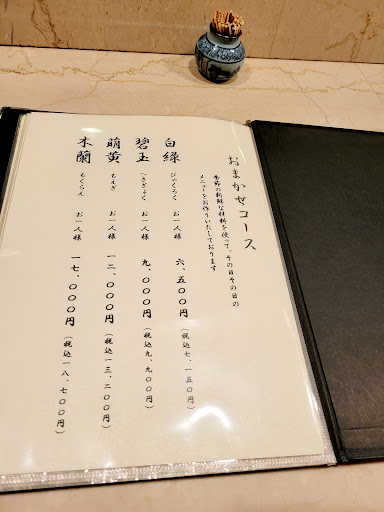 おまかせコース
季節の新鮮な材料を使って、その日その日の
メニューをお作りいたしております
白緑 びゃくろく お一人様 六、五〇〇円（税込七、一五〇円）
碧玉 へきぎょく お一人様 九、〇〇〇円（税込九、九〇〇円）
萌黄 もえぎ お一人様 一二、〇〇〇円（税込一三、二〇〇円）
木蘭 もくらん お一人様 一七、〇〇〇円（税込一八、七〇〇円）